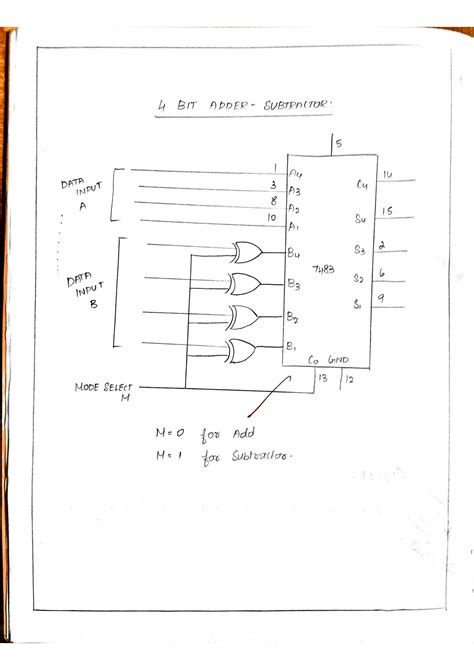 4 BIT ADDER - SUBTRACTOR.
5
DATA INPUT A
1 A4
3 A3
8 A2
10 A1
C4 14
S4 15
S3 2
S2 6
S1 9
7483
DATA INPUT B
B4
B3
B2
B1
C0 GND
13 12
MODE SELECT M
M = 0 for Add
M = 1 for Subtractor.